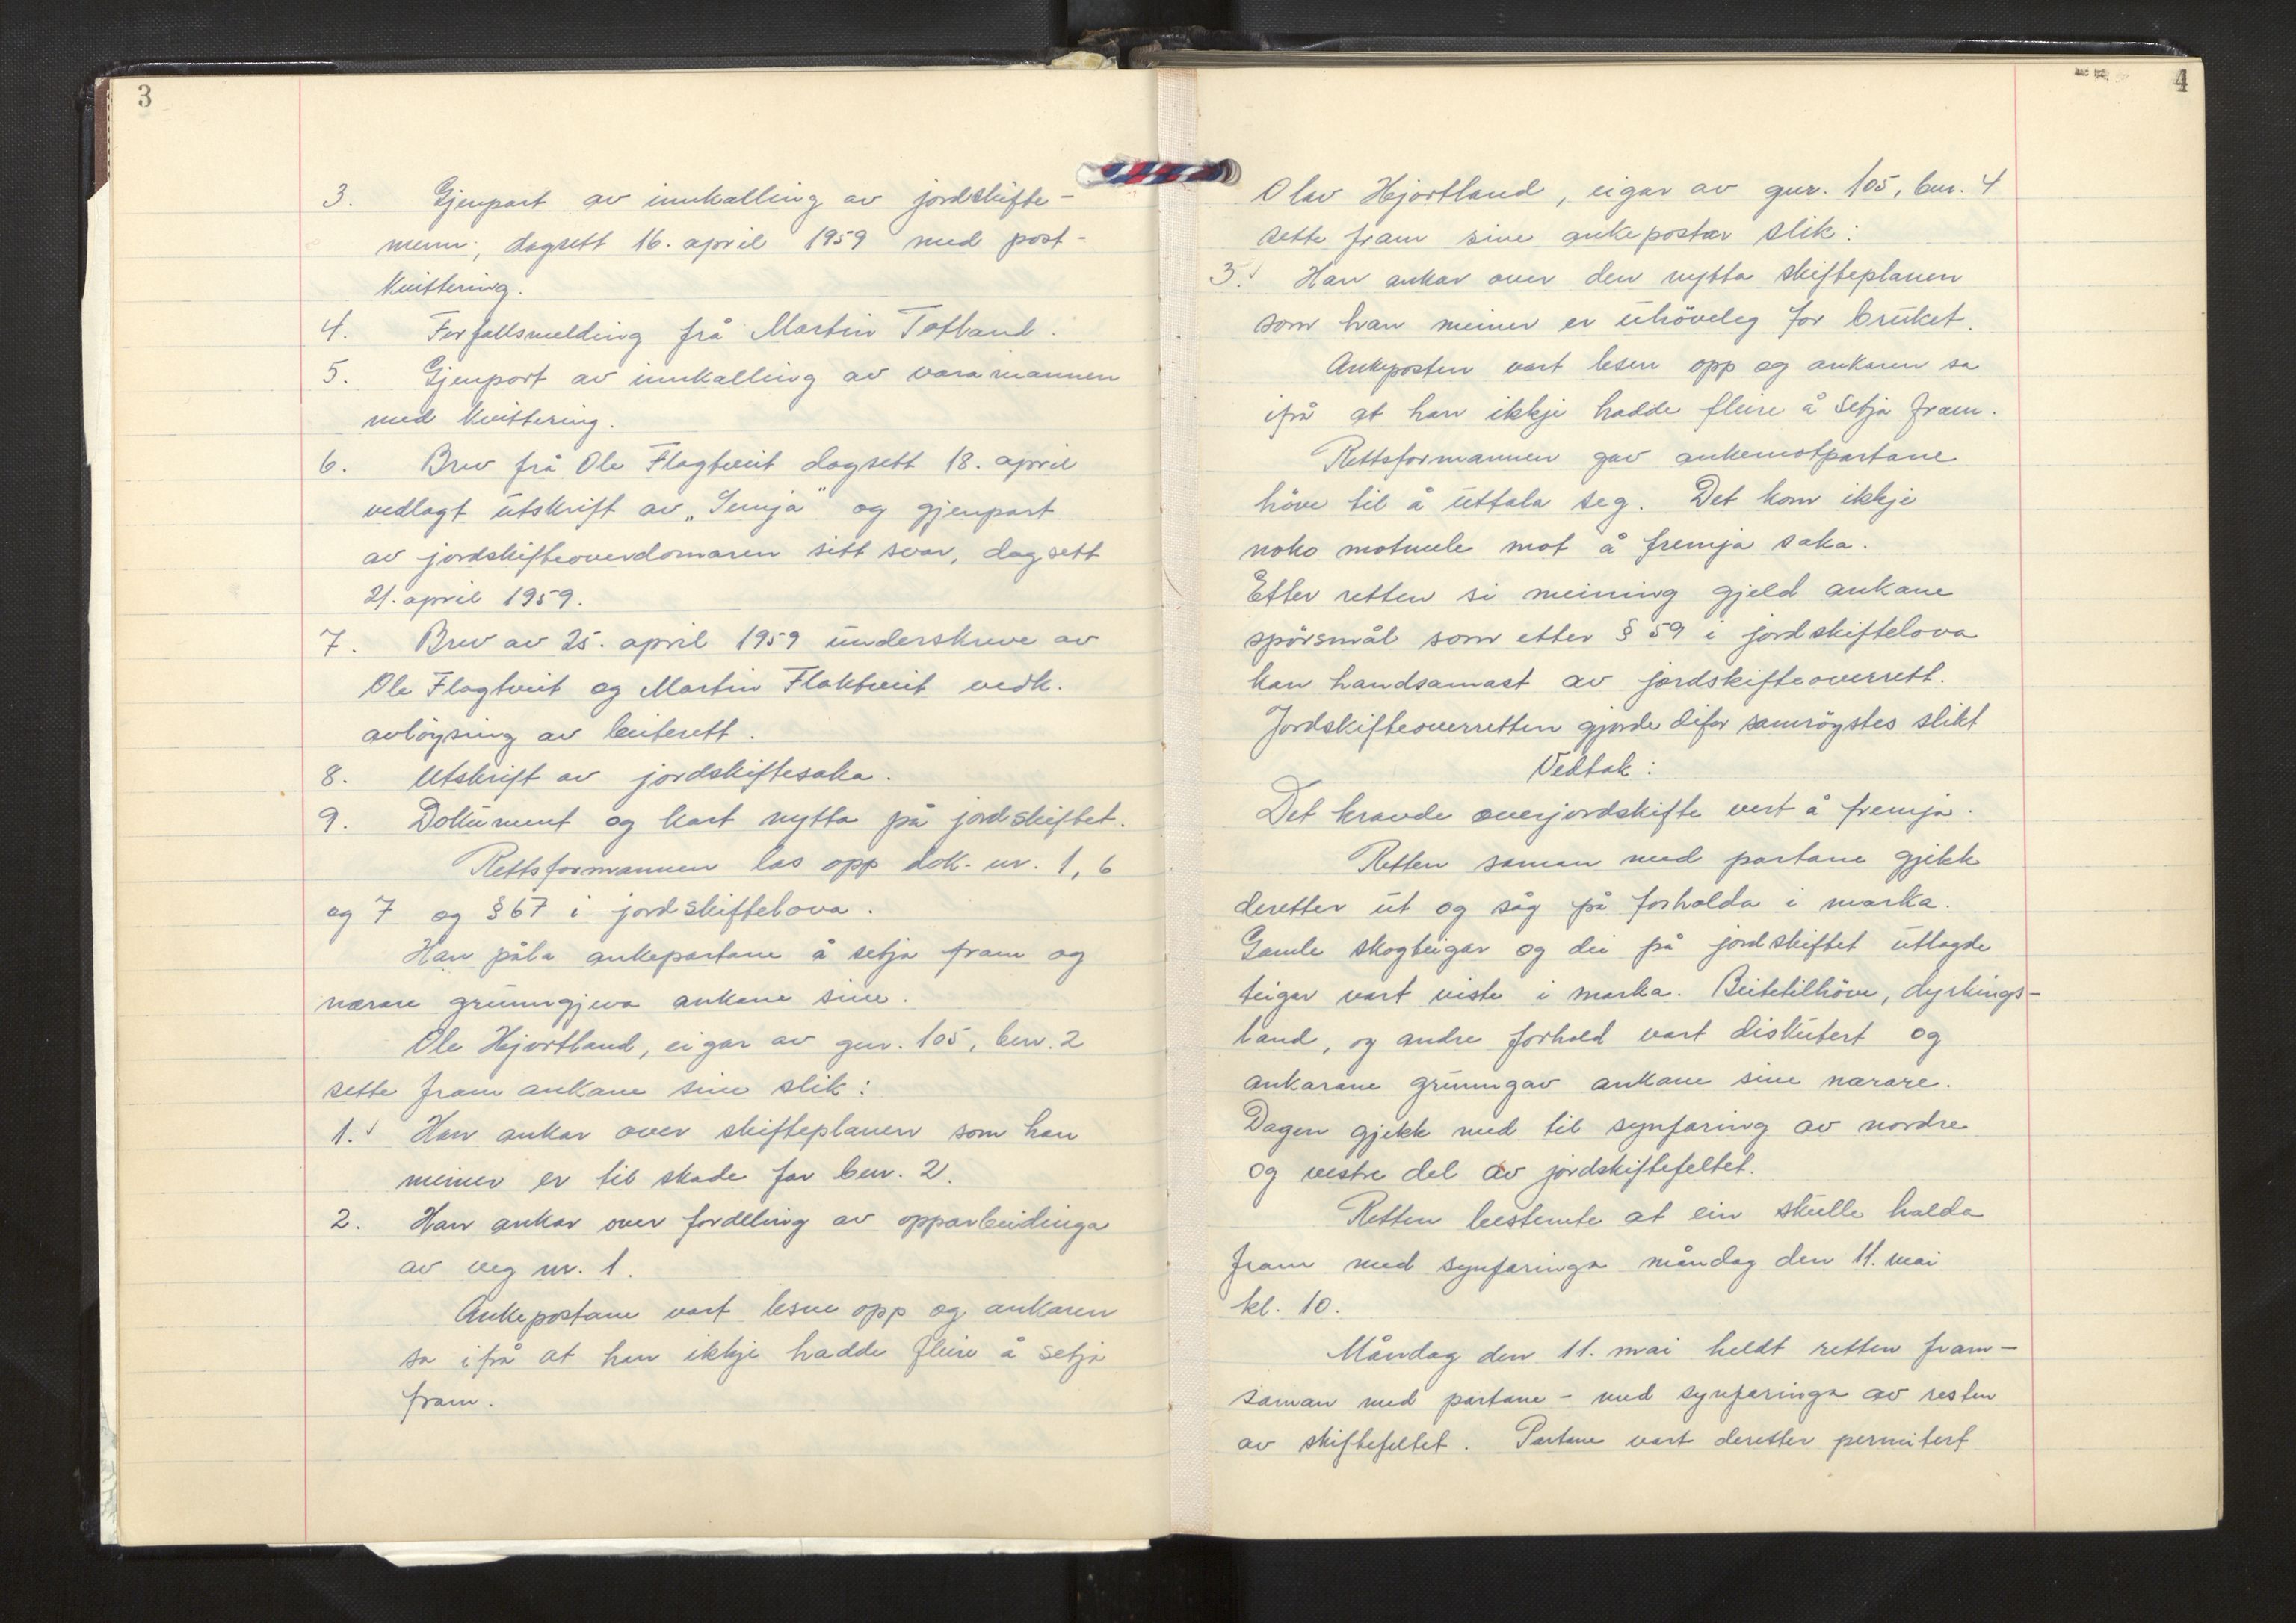 3
3. Gjenpart av innkalling av jordskifte-
menn, dagsett 16. april 1959 med post-
kvittering.
4. Forfallsmelding frå Martin Totland.
5. Gjenpart av innkalling av varamannen
med kvittering.
6. Brev frå Ole Flagtveit dagsett 18. april
vedlagt utskrift av „Semja" og gjenpart
av jordskifteoverdomaren sitt svar, dagsett
21. april 1959.
7. Brev av 25. april 1959 underskreve av
Ole Flagtveit og Martin Flaktveit vedk.
avløysing av beiterett.
8. Utskrift av jordskiftesaka.
9. Dokument og kart nytta på jordskiftet.
Rettsformannen las opp dok. nr. 1, 6
og 7 og § 67 i jordskiftelova.
Han påla ankepartane å setja fram og
nærare grunngjeva ankane sine.
Ole Hjortland, eigar av gnr. 105, bnr. 2
sette fram ankane sine slik:
1. Han ankar over skifteplanen som han
meiner er til skade for bnr. 2.
2. Han ankar over fordeling av opparbeidinga
av veg nr. 1.
Ankepostane vart lesne opp og ankaren
sa ifrå at han ikkje hadde fleire å setja
fram.
4
Olav Hjortland, eigar av gnr. 105, bnr. 4
sette fram sine ankepostar slik:
3. Han ankar over den nytta skifteplanen
som han meiner er uhøveleg for bruket.
Ankeposten vart lesen opp og ankaren sa
ifrå at han ikkje hadde fleire å setja fram.
Rettsformannen gav ankemotpartane
høve til å uttala seg. Det kom ikkje
noko motmæle mot å fremja saka.
Etter retten si meining gjeld ankane
spørsmål som etter § 59 i jordskiftelova
kan handsamast av jordskifteoverrett.
Jordskifteoverretten gjorde difor samrøystes slikt
Vedtak:
Det kravde overjordskifte vert å fremja.
Retten saman med partane gjekk
deretter ut og såg på forholda i marka.
Gamle skogteigar og dei på jordskiftet utlagde
teigar vart viste i marka. Beitetilhøve, dyrkings-
land, og andre forhold vart diskutert og
ankarane grunngav ankane sine nærare.
Dagen gjekk med til synfaring av nordre
og vestre del av jordskiftefeltet.
Retten bestemte at ein skulle halda
fram med synfaringa måndag den 11. mai
kl. 10.
Måndag den 11. mai heldt retten fram -
saman med partane - med synfaringa av resten
av skiftefeltet. Partane vart deretter permitert